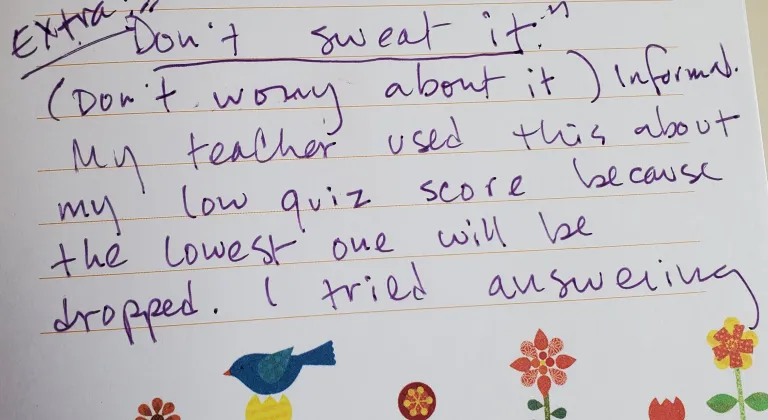 Extra: "Don't sweat it."
(Don't worry about it) Informal.
My teacher used this about
my low quiz score because
the lowest one will be
dropped. I tried answering